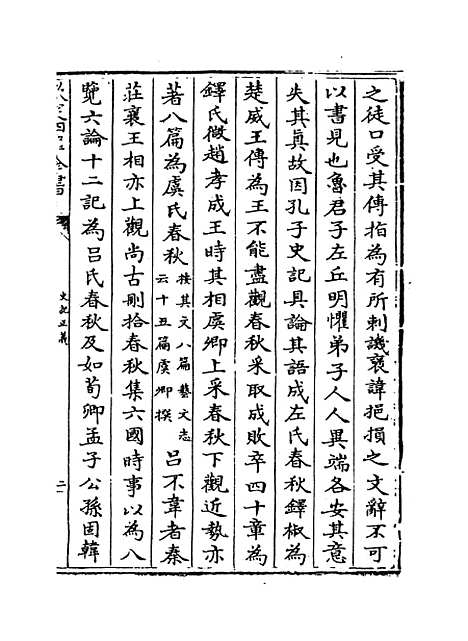 之徒口受其傳指為有所刺譏褒諱挹損之文辭不可
以書見也魯君子左丘明懼弟子人人異端各安其意
失其真故因孔子史記具論其語成左氏春秋鐸椒為
楚威王傳為王不能盡觀春秋采取成敗卒四十章為
鐸氏微趙孝成王時其相虞卿上采春秋下觀近勢亦
著八篇為虞氏春秋按其文八篇藝文志云十五篇虞卿撰呂不韋者秦
莊襄王相亦上觀尚古刪拾春秋集六國時事以為八
覽六論十二記為呂氏春秋及如荀卿孟子公孫固韓
四庫全書
史記正義
二